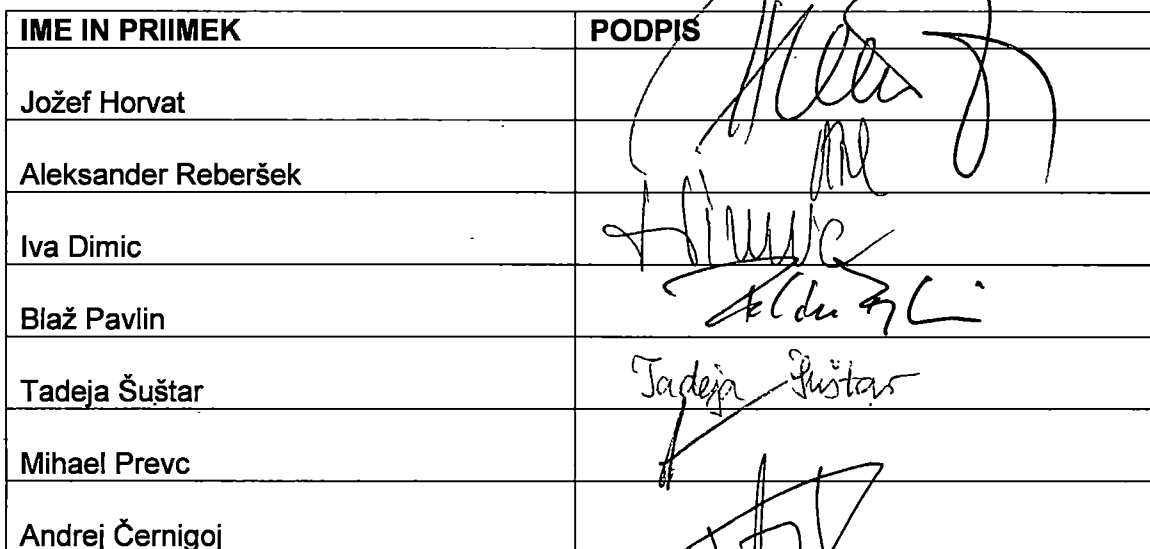 IME IN PRIIMEK PODPIS
Jožef Horvat
Aleksander Reberšek
Iva Dimic
Blaž Pavlin
Tadeja Šuštar Tadeja Šuštar
Mihael Prevc
Andrej Černigoj